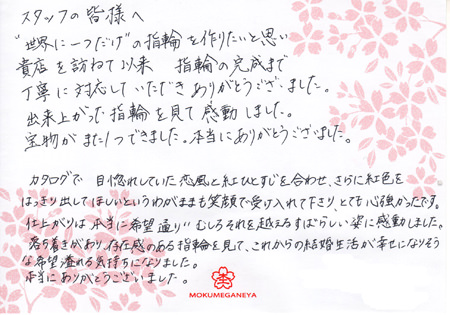 スタッフの皆様へ
"世界に一つだけ"の指輪を作りたいと思い
貴店を訪ねて以来 指輪の完成まで
丁寧に対応していただきありがとうございました。
出来上がった指輪を見て感動しました。
宝物がまた1つできました。本当にありがとうございました。
カタログで目惚れしていた恋風と紅ひとすじを合わせ、さらに紅色を
はっきり出してほしいというわがままも笑顔で受け入れて下さり、とても心強かったです。
仕上がりは本当に希望通り、むしろそれを越えるすばらしい姿に感動しました。
落ち着きがあり、存在感のある指輪を見て、これからの結婚生活が幸せになりそう
な希望溢れる気持ちになりました。
本当にありがとうございました。
MOKUMEGANEYA